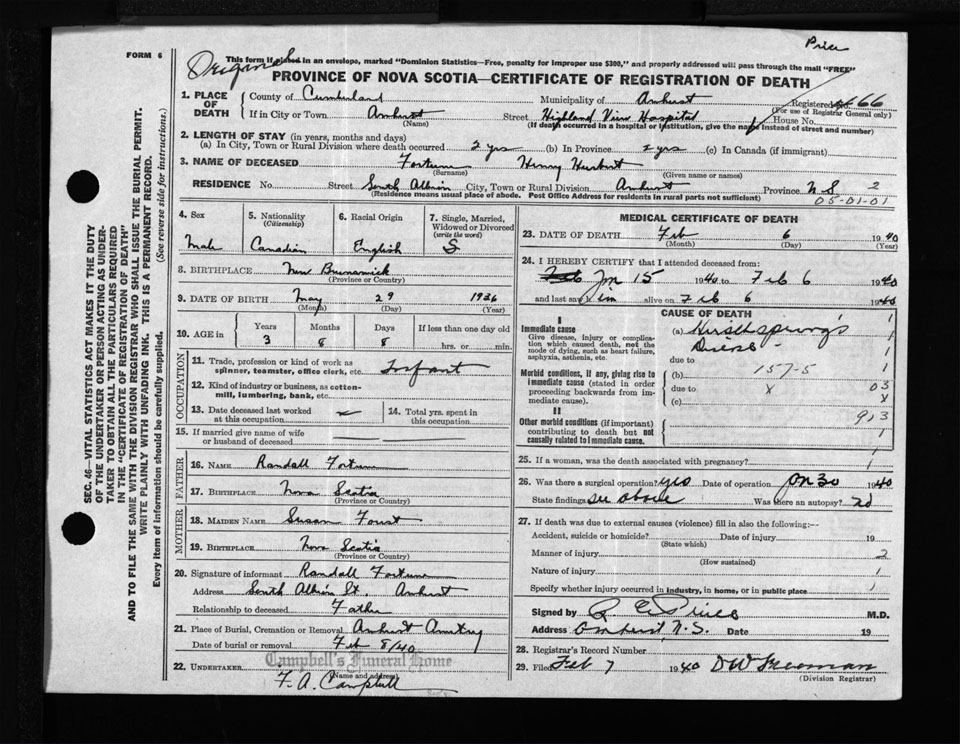 Price
FORM 6
Original
This form if placed in an envelope, marked "Dominion Statistics—Free, penalty for improper use $300," and properly addressed will pass through the mail "FREE"
PROVINCE OF NOVA SCOTIA—CERTIFICATE OF REGISTRATION OF DEATH
1. PLACE OF DEATH
County of Cumberland Municipality of Amherst Registered No. 66
(For use of Registrar General only)
If in City or Town Amherst Street Highland View Hospital House No.
(Name) (If death occurred in a hospital or institution, give the name instead of street and number)
2. LENGTH OF STAY (in years, months and days)
(a) In City, Town or Rural Division where death occurred 2 yrs (b) In Province 2 yrs (c) In Canada (if immigrant)
3. NAME OF DECEASED Fortune Henry Hurbert
(Surname) (Given name or names)
RESIDENCE No. Street South Albion City, Town or Rural Division Amherst Province N S 2
(Residence means usual place of abode. Post Office Address for residents in rural parts not sufficient) 05-01-01
4. Sex
Male
5. Nationality
(Citizenship)
Canadian
6. Racial Origin
English
7. Single, Married, Widowed or Divorced
(write the word)
S
8. BIRTHPLACE New Brunswick
(Province or Country)
9. DATE OF BIRTH May 29 1936
(Month) (Day) (Year)
10. AGE in
Years Months Days If less than one day old
3 8 8 hrs. or min.
OCCUPATION
11. Trade, profession or kind of work as spinner, teamster, office clerk, etc. Infant
12. Kind of industry or business, as cotton-mill, lumbering, bank, etc.
13. Date deceased last worked at this occupation —
14. Total yrs. spent in this occupation
15. If married give name of wife or husband of deceased
FATHER
16. NAME Randall Fortune
17. BIRTHPLACE Nova Scotia
(Province or Country)
MOTHER
18. MAIDEN NAME Susan Foust
19. BIRTHPLACE Nova Scotia
(Province or Country)
20. Signature of informant Randall Fortune
Address South Albion St. Amherst
Relationship to deceased Father
21. Place of Burial, Cremation or Removal Amherst
Date of burial or removal Feb 8/40
Campbell's Funeral Home
22. UNDERTAKER
(Name and address)
F. A. Campbell
MEDICAL CERTIFICATE OF DEATH
23. DATE OF DEATH Feb 6 1940
(Month) (Day) (Year)
24. I HEREBY CERTIFY that I attended deceased from:
Jan 15 1940 to Feb 6 1940
and last saw him alive on Feb 6 1940
CAUSE OF DEATH
I
Immediate cause
Give disease, injury or complication which caused death, not the mode of dying, such as heart failure, asphyxia, asthenia, etc.
(a) Hirschsprung's
Disease -
due to
Morbid conditions, if any, giving rise to immediate cause (stated in order proceeding backwards from immediate cause).
(b) 157-5
due to X 03
(c) X
II
Other morbid conditions (if important) contributing to death but not causally related to immediate cause.
913
25. If a woman, was the death associated with pregnancy?
26. Was there a surgical operation? yes Date of operation Jan 30 1940
State findings see above Was there an autopsy? 2d
27. If death was due to external causes (violence) fill in also the following:—
Accident, suicide or homicide? Date of injury 19
(State which)
Manner of injury 2
(How sustained)
Nature of injury 1
Specify whether injury occurred in industry, in home, or in public place 1
Signed by M.D.
Address Amherst, N.S. Date 19
28. Registrar's Record Number
29. Filed Feb 7 1940 D W Freeman
(Division Registrar)
SEC. 46—VITAL STATISTICS ACT MAKES IT THE DUTY
OF THE UNDERTAKER OR PERSON ACTING AS UNDER-
TAKER TO OBTAIN ALL THE PARTICULARS REQUIRED
IN THE "CERTIFICATE OF REGISTRATION OF DEATH"
AND TO FILE THE SAME WITH THE DIVISION REGISTRAR WHO SHALL ISSUE THE BURIAL PERMIT.
WRITE PLAINLY WITH UNFADING INK. THIS IS A PERMANENT RECORD.
Every item of information should be carefully supplied. (See reverse side for instructions.)